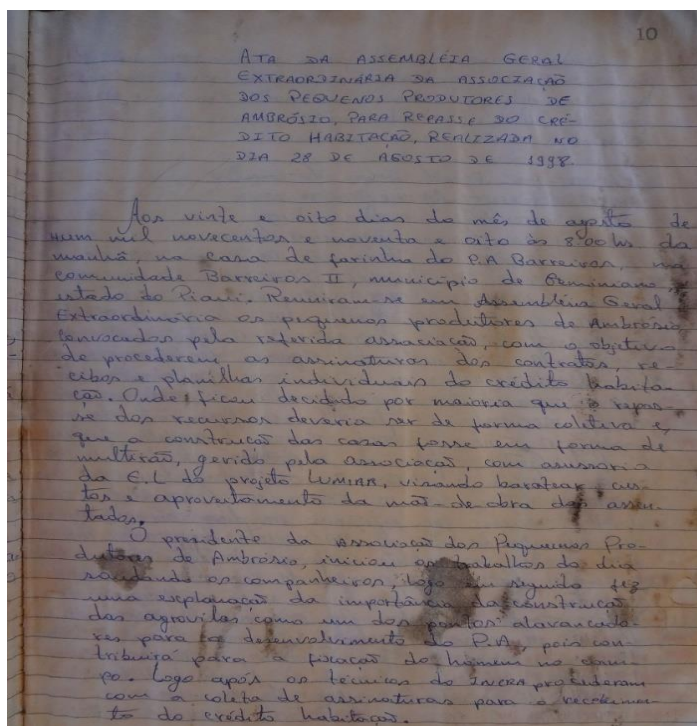 10
ATA DA ASSEMBLÉIA GERAL
EXTRAORDINÁRIA DA ASSOCIAÇÃO
DOS PEQUENOS PRODUTORES DE
AMBRÓSIO, PARA REPASSE DO CRÉ-
DITO HABITAÇÃO, REALIZADA NO
DIA 28 DE AGOSTO DE 1998.
Aos vinte e oito dias do mês de agosto de
Hum mil novecentos e noventa e oito às 8:00 hs da
manhã, na casa de farinha do P.A Barreiros, na
comunidade Barreiros II, município de Geminiano,
estado do Piauí. Reuniram-se em Assembléia Geral
Extraordinária os pequenos produtores de Ambrósio,
convocados pela referida associação, com o objetivo
de procederem as assinaturas dos contratos, re-
cibos e planilhas individuais do crédito habita-
ção. Onde ficou decidido por maioria que o repas-
se dos recursos deveria ser de forma coletiva e,
que a construção das casas fosse em forma de
multirão, gerido pela associação, com assessoria
da E.L do projeto LUMIAR, visando baratear cus-
tos e aproveitamento da mão-de-obra dos assen-
tados.
O presidente da Associação dos Pequenos Pro-
dutores de Ambrósio, iniciou os trabalhos do dia
saudando os companheiros, logo em seguida fez
uma explanação da importância da construção
das agrovilas como um dos pontos alavancado-
res para o desenvolvimento do P.A, pois con-
tribuirá para a fixação do homem no cam-
po. Logo após os técnicos do INCRA procederam
com a coleta de assinaturas para o recebimen-
to do crédito habitação.